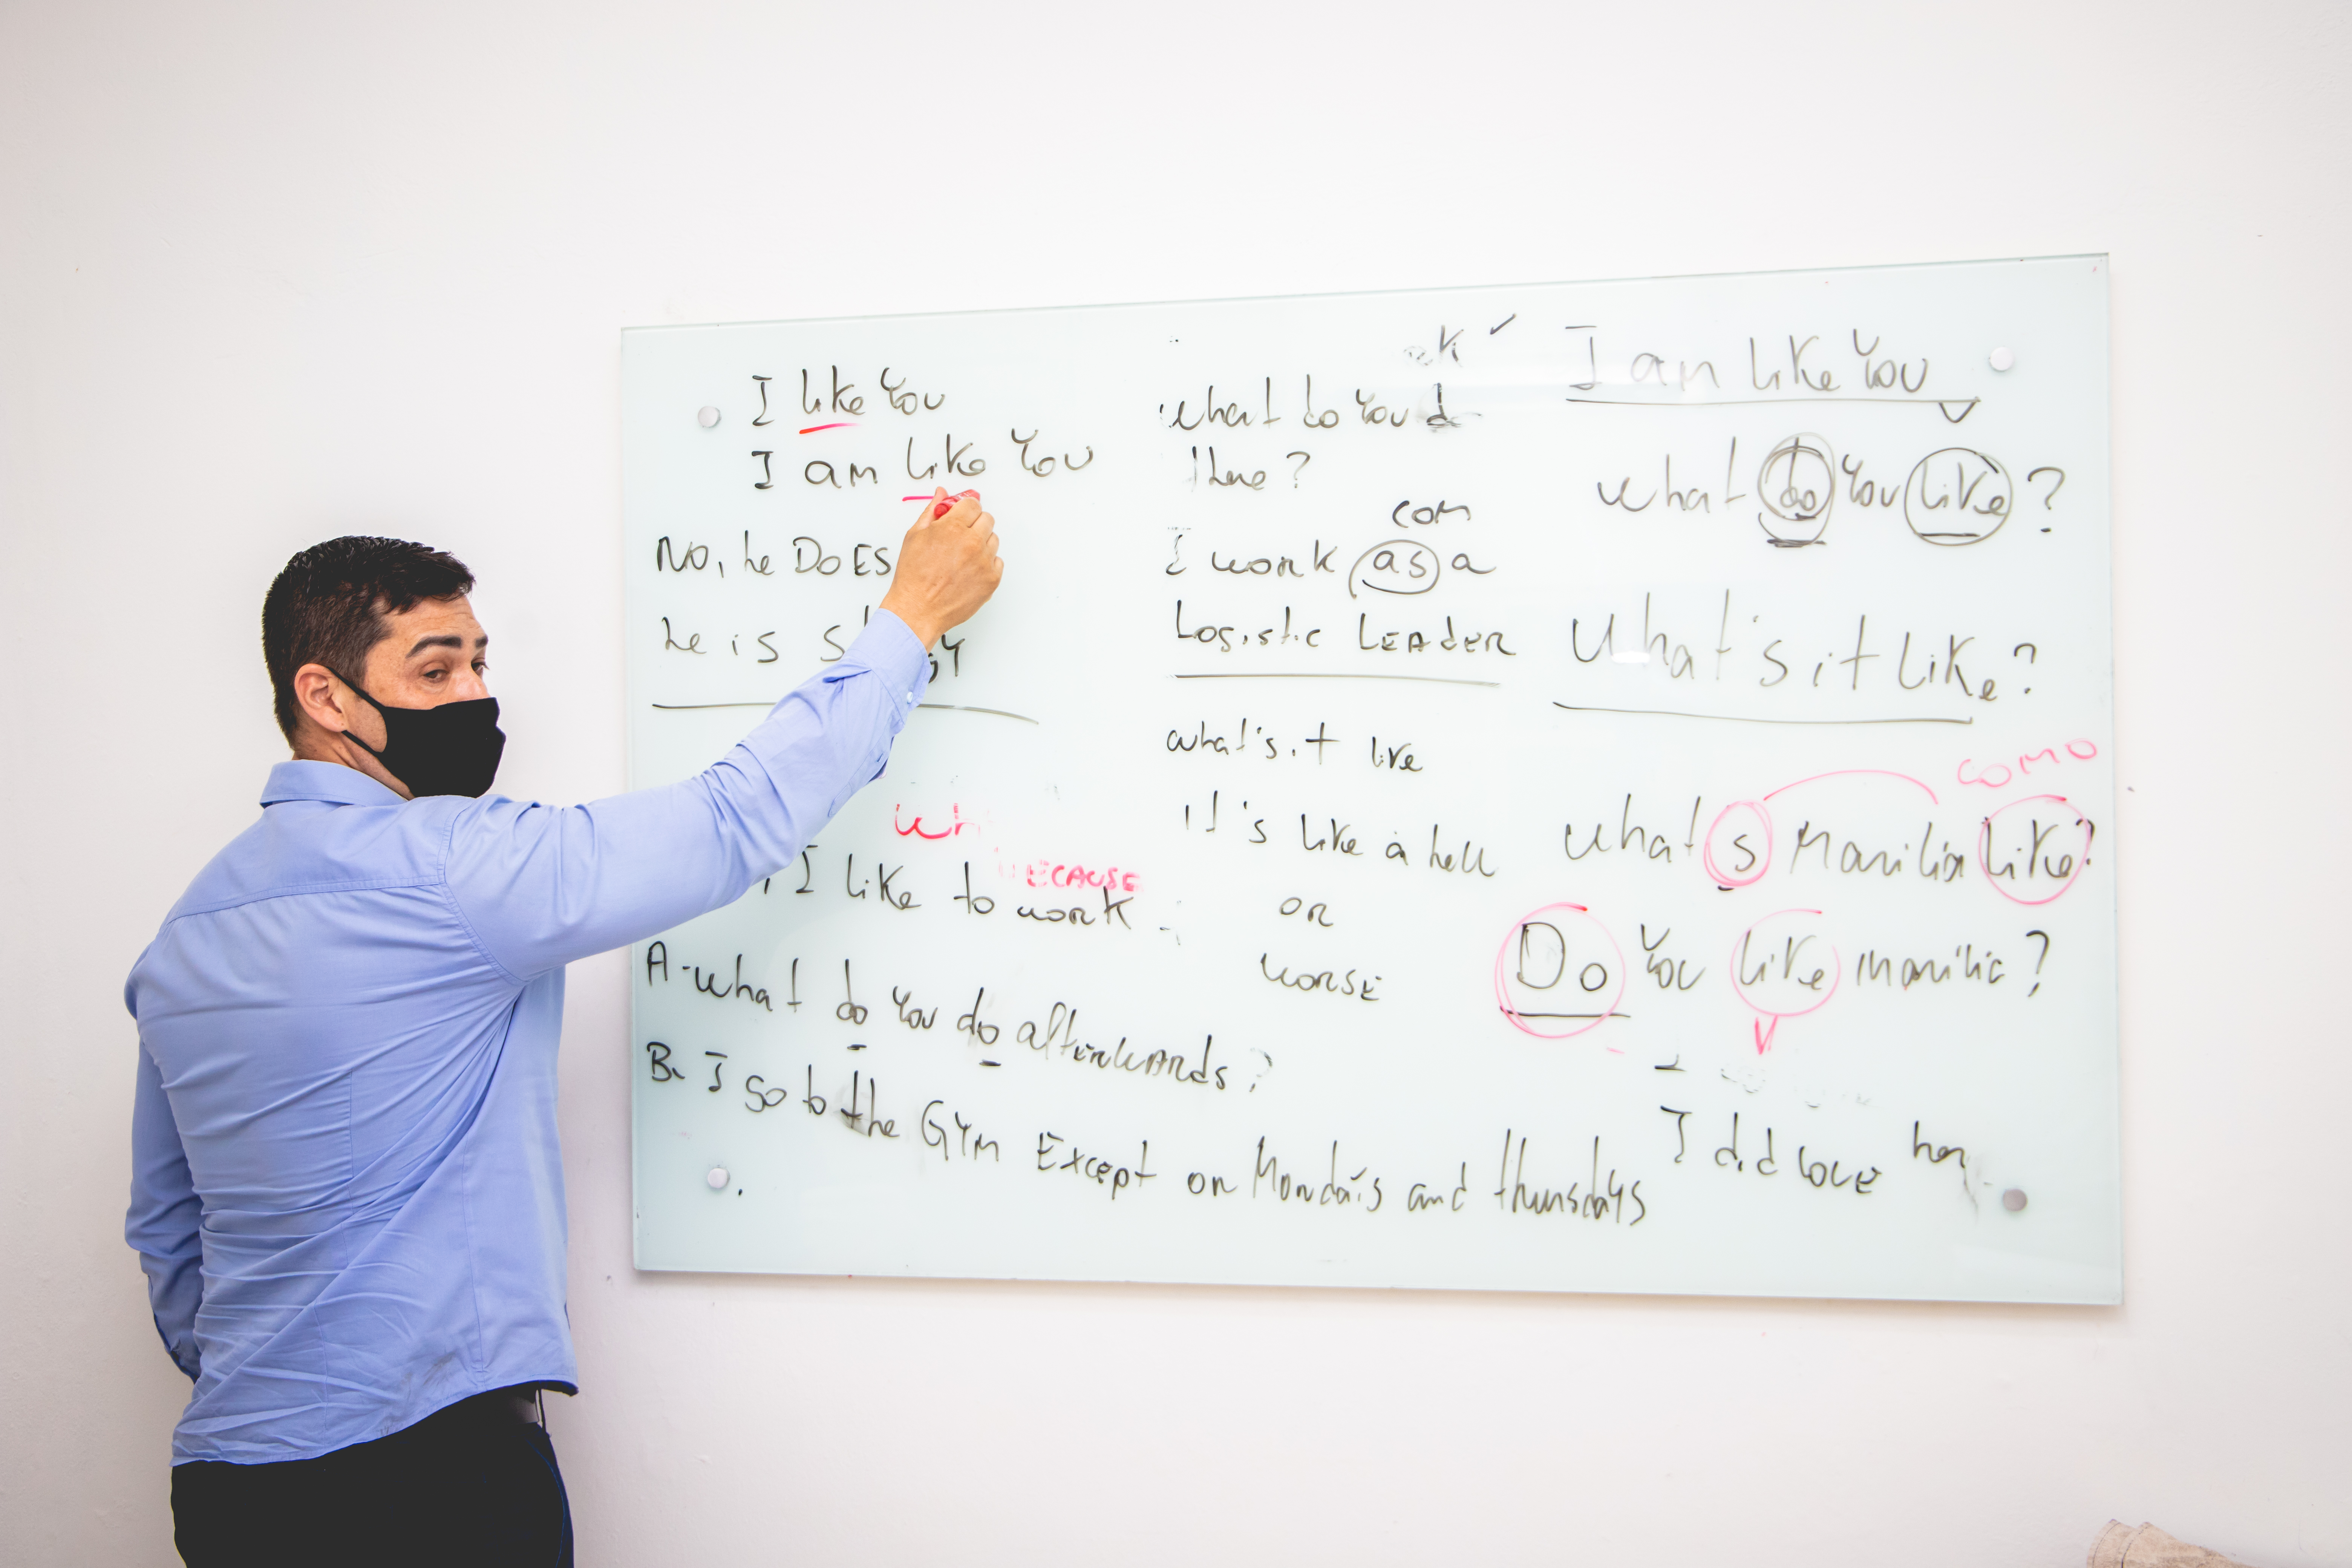 I like You
I am like You
No, he DOES
he is
Wh
BECAUSE
I like to work
A - what do you do afterwards?
B. I go to the GYM Except on Mondais and thursdays
what do you d
there?
com
I work as a
Logistic LEADER
what's it like
it's like a hell
or
worse
I am like You
what do You like?
What's it like?
como
what s Marilia like?
Do You like marilia?
I did love her